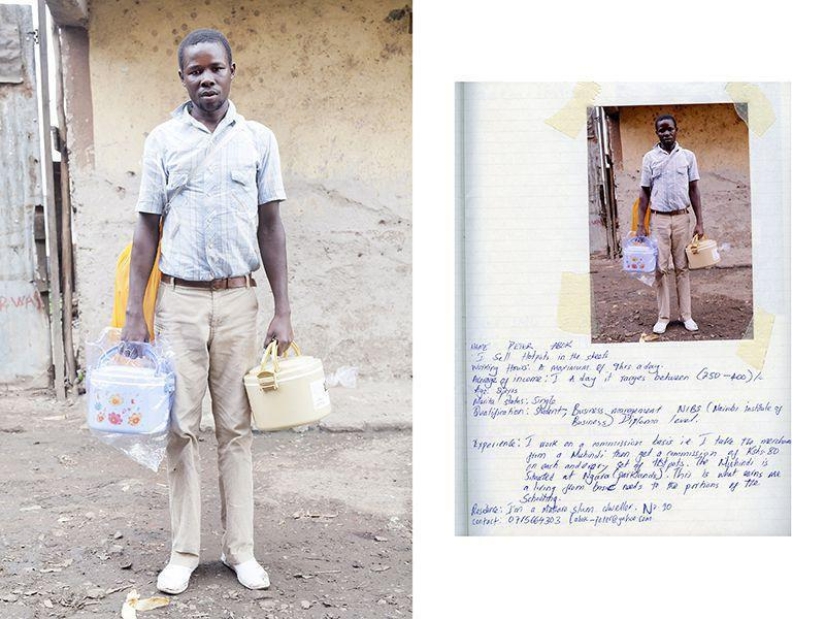 R. WA
NAME PETER ABOK
I Sell Hotpots in the streets
Working Hours: A maximum of 9hrs a day.
Average of income: I A day it ranges between (250 - 400)/-
Age:
Marital status: Single
Qualification: Studenty Business management NIBS (Nairobi institute of
Business) Diploma level.
Experience: I work on a commission basis i.e. I take the
from a Muhindi then get a commission of Kshs. 80
in each and every set of Hotpots. The Muhindi is
Situated at Ngara (parklands). This is what earns me
a living from basic needs to the portions of the
Schooling.
Residence: I'm a Mathare slum dweller. No 10
contact: 0715664303